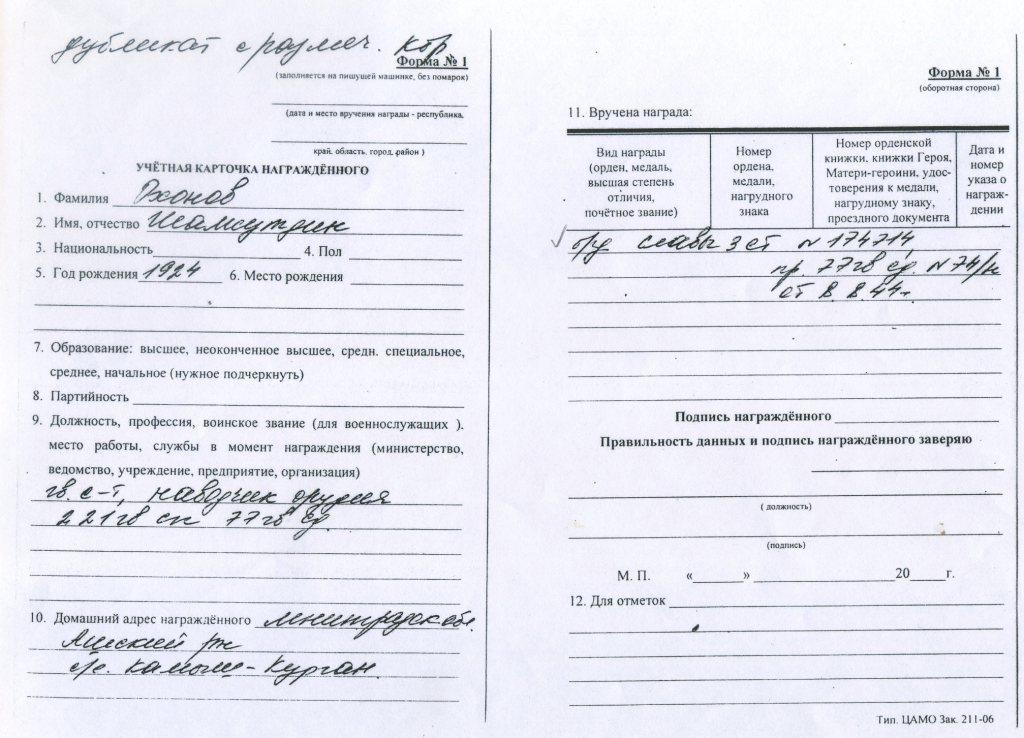 дубликат с размеч. ктр
Форма № 1
(заполняется на пишущей машинке, без помарок)
(дата и место вручения награды - республика,
край, область, город, район )
УЧЁТНАЯ КАРТОЧКА НАГРАЖДЁННОГО
1. Фамилия Эхонов
2. Имя, отчество Шамсутдин
3. Национальность 4. Пол
5. Год рождения 1924 6. Место рождения
7. Образование: высшее, неоконченное высшее, средн. специальное,
среднее, начальное (нужное подчеркнуть)
8. Партийность
9. Должность, профессия, воинское звание (для военнослужащих ).
место работы, службы в момент награждения (министерство,
ведомство, учреждение, предприятие, организация)
гв. с-т, наводчик орудия
221 гв сп 77 гв сд.
10. Домашний адрес награждённого обл.
рн
с/с. Камыш-Курган
Форма № 1
(оборотная сторона)
11. Вручена награда:
Вид награды
(орден, медаль,
высшая степень
отличия,
почётное звание)
Номер
ордена,
медали,
нагрудного
знака
Номер орденской
книжки, книжки Героя,
Матери-героини, удос-
товерения к медали,
нагрудному знаку,
проездного документа
Дата и
номер
указа о
награж-
дении
✓ о/у славы 3 ст N 174714
пр. 77 гв сд. N 74/н
от 8.8.44г.
Подпись награждённого
Правильность данных и подпись награждённого заверяю
( должность)
(подпись)
М. П. «______» ____________________20_____г.
12. Для отметок
Тип. ЦАМО Зак. 211-06